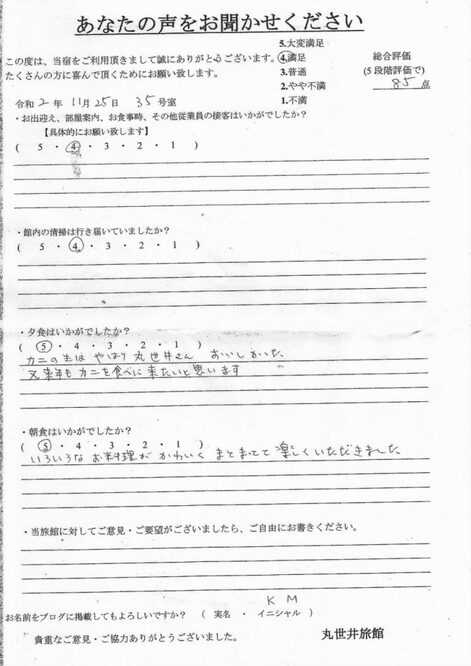 あなたの声をお聞かせください
この度は、当宿をご利用頂きまして誠にありがとうございます。
たくさんの方に喜んで頂くためにお願い致します。
5.大変満足
4.満足
3.普通
2.やや不満
1.不満
総合評価
(5段階評価で)
85点
令和2年11月25日 35号室
・お出迎え、部屋案内、お食事時、その他従業員の接客はいかがでしたか?
【具体的にお願い致します】
( 5 ・ 4 ・ 3 ・ 2 ・ 1 )
・館内の清掃は行き届いていましたか?
( 5 ・ 4 ・ 3 ・ 2 ・ 1 )
・夕食はいかがでしたか?
( 5 ・ 4 ・ 3 ・ 2 ・ 1 )
カニの生は やはり 丸世井さん おいしかった
又来年もカニを食べに来たいと思います
・朝食はいかがでしたか?
( 5 ・ 4 ・ 3 ・ 2 ・ 1 )
いろいろな お料理が かわいく まとまてて 楽しくいただきました
・当旅館に対してご意見・ご要望がございましたら、ご自由にお書きください。
K M
お名前をブログに掲載してもよろしいですか? ( 実名 ・ イニシャル )
貴重なご意見・ご協力ありがとうございました。
丸世井旅館